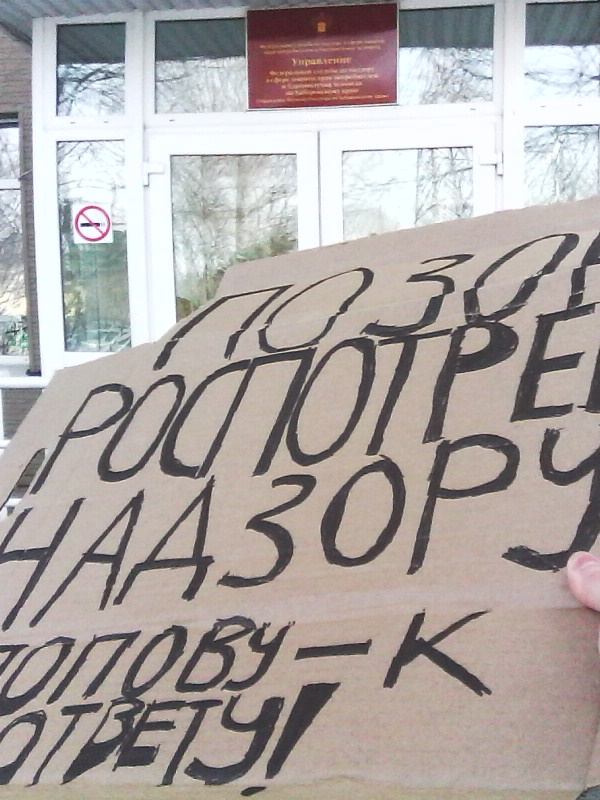 Управление
Федеральной службы по надзору
в сфере защиты прав потребителей
и благополучия человека
по Хабаровскому краю
ПОЗОР
РОСПОТРЕБ
НАДЗОРУ
ПОПОВУ — К
ОТВЕТУ!